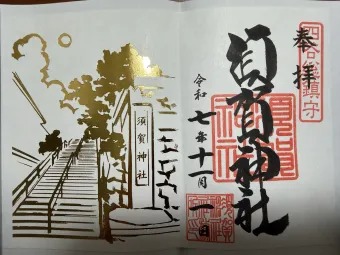 四谷總鎮守
奉拝
須賀神社
令和七年十一月一日
須賀神社